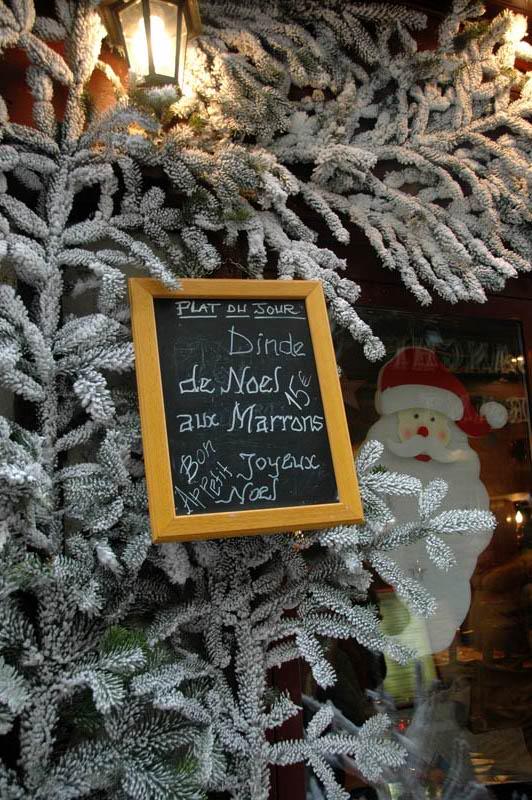 PLAT DU JOUR
Dinde
de Noel
15€
aux Marrons
Bon
Appetit
Joyeux
Noel